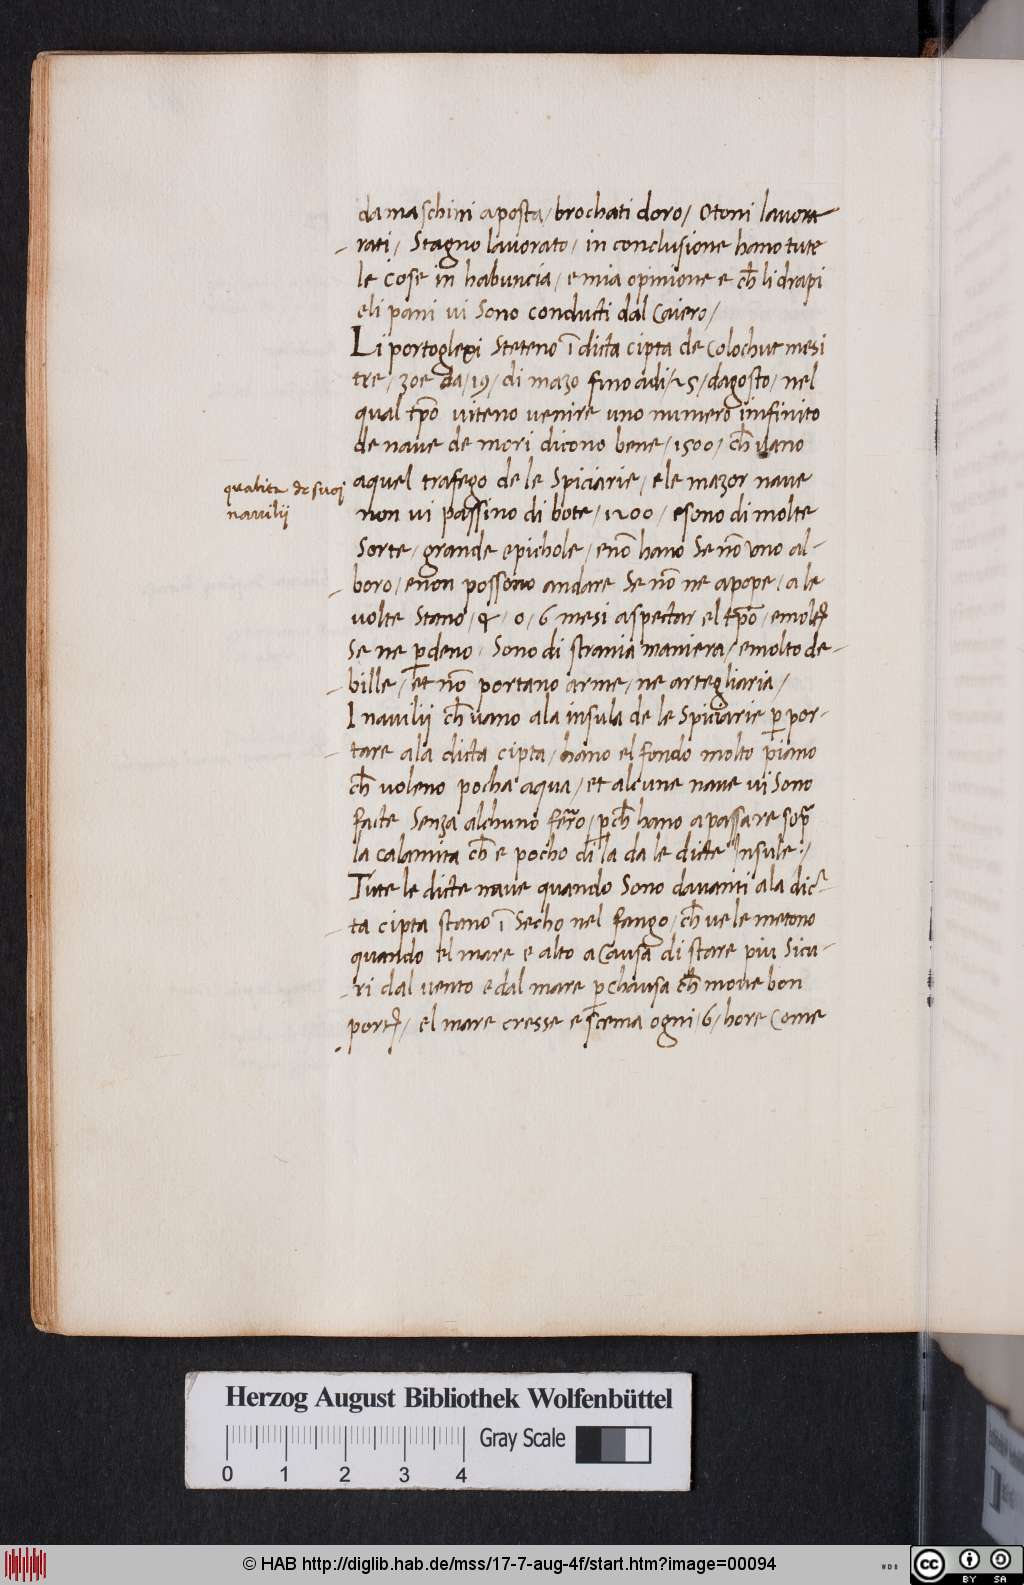 damaschini aposta / brochati doro / Otoni lavora
- rati / Stagno lavorato / in conclusione hano tute
le cose in habuncia / e mia opinione e ch̄ li drapi
eli pani ui Sono conducti dal Caiero /
Li portoglexi Steteno ī dicta cipta de Colochut mesi
tre / zoe da / 19 / di mazo fino adi / 25 / dagosto / nel
qual tp̄o viteno venire uno numero infinito
de naue de mori dicono bene / 1500 / ch̄ uano
aquel trafego de le Spiciarie / ele mazor naue
qualita de suoj
nauilij
non ui passino di bote / 1200 / esono di molte
Sorte / grande epichole / enō hano Se nō uno al-
- boro / enon possono andare Se nō ne apope / a le
volte Stano / 4 / o / 6 mesi aspectar el tp̄o / emolt
Se ne p̄deno / Sono di strania maniera / emolto de-
- bille / et nō portano arme / ne artegliaria /
I nauilij ch̄ uano ala insula de le Spiciarie p̄ por-
- tare ala dicta cipta / hano el fondo molto piano
ch̄ voleno pocha aqua / et alcune naue ui Sono
facte Senza alchuno fer̄o / p̄ch̄ hano apassare sop̄
la calamita ch̄ e pocho di la da le dicte Insule : /
Tute le dicte naue quando Sono dauanti ala dic-
- ta cipta stano ī Secho nel fango / ch̄ ue le metono
quando el mare e alto a Causa di stare piu Sicu-
- ri dal uento e dal mare p̄ chausa ch̄ no ue bon
port / el mare cresse e scema ogni / 6 / hore Come
Herzog August Bibliothek Wolfenbüttel
0 1 2 3 4 Gray Scale
© HAB http://diglib.hab.de/mss/17-7-aug-4f/start.htm?image=00094
WDB
cc BY SA